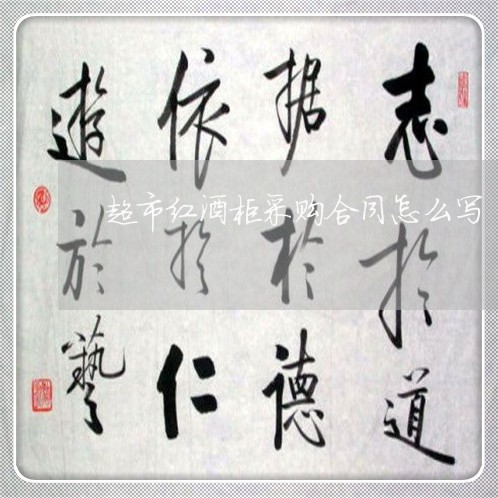 志於道
据於德
依於仁
遊於藝
超市红酒柜采购合同怎么写